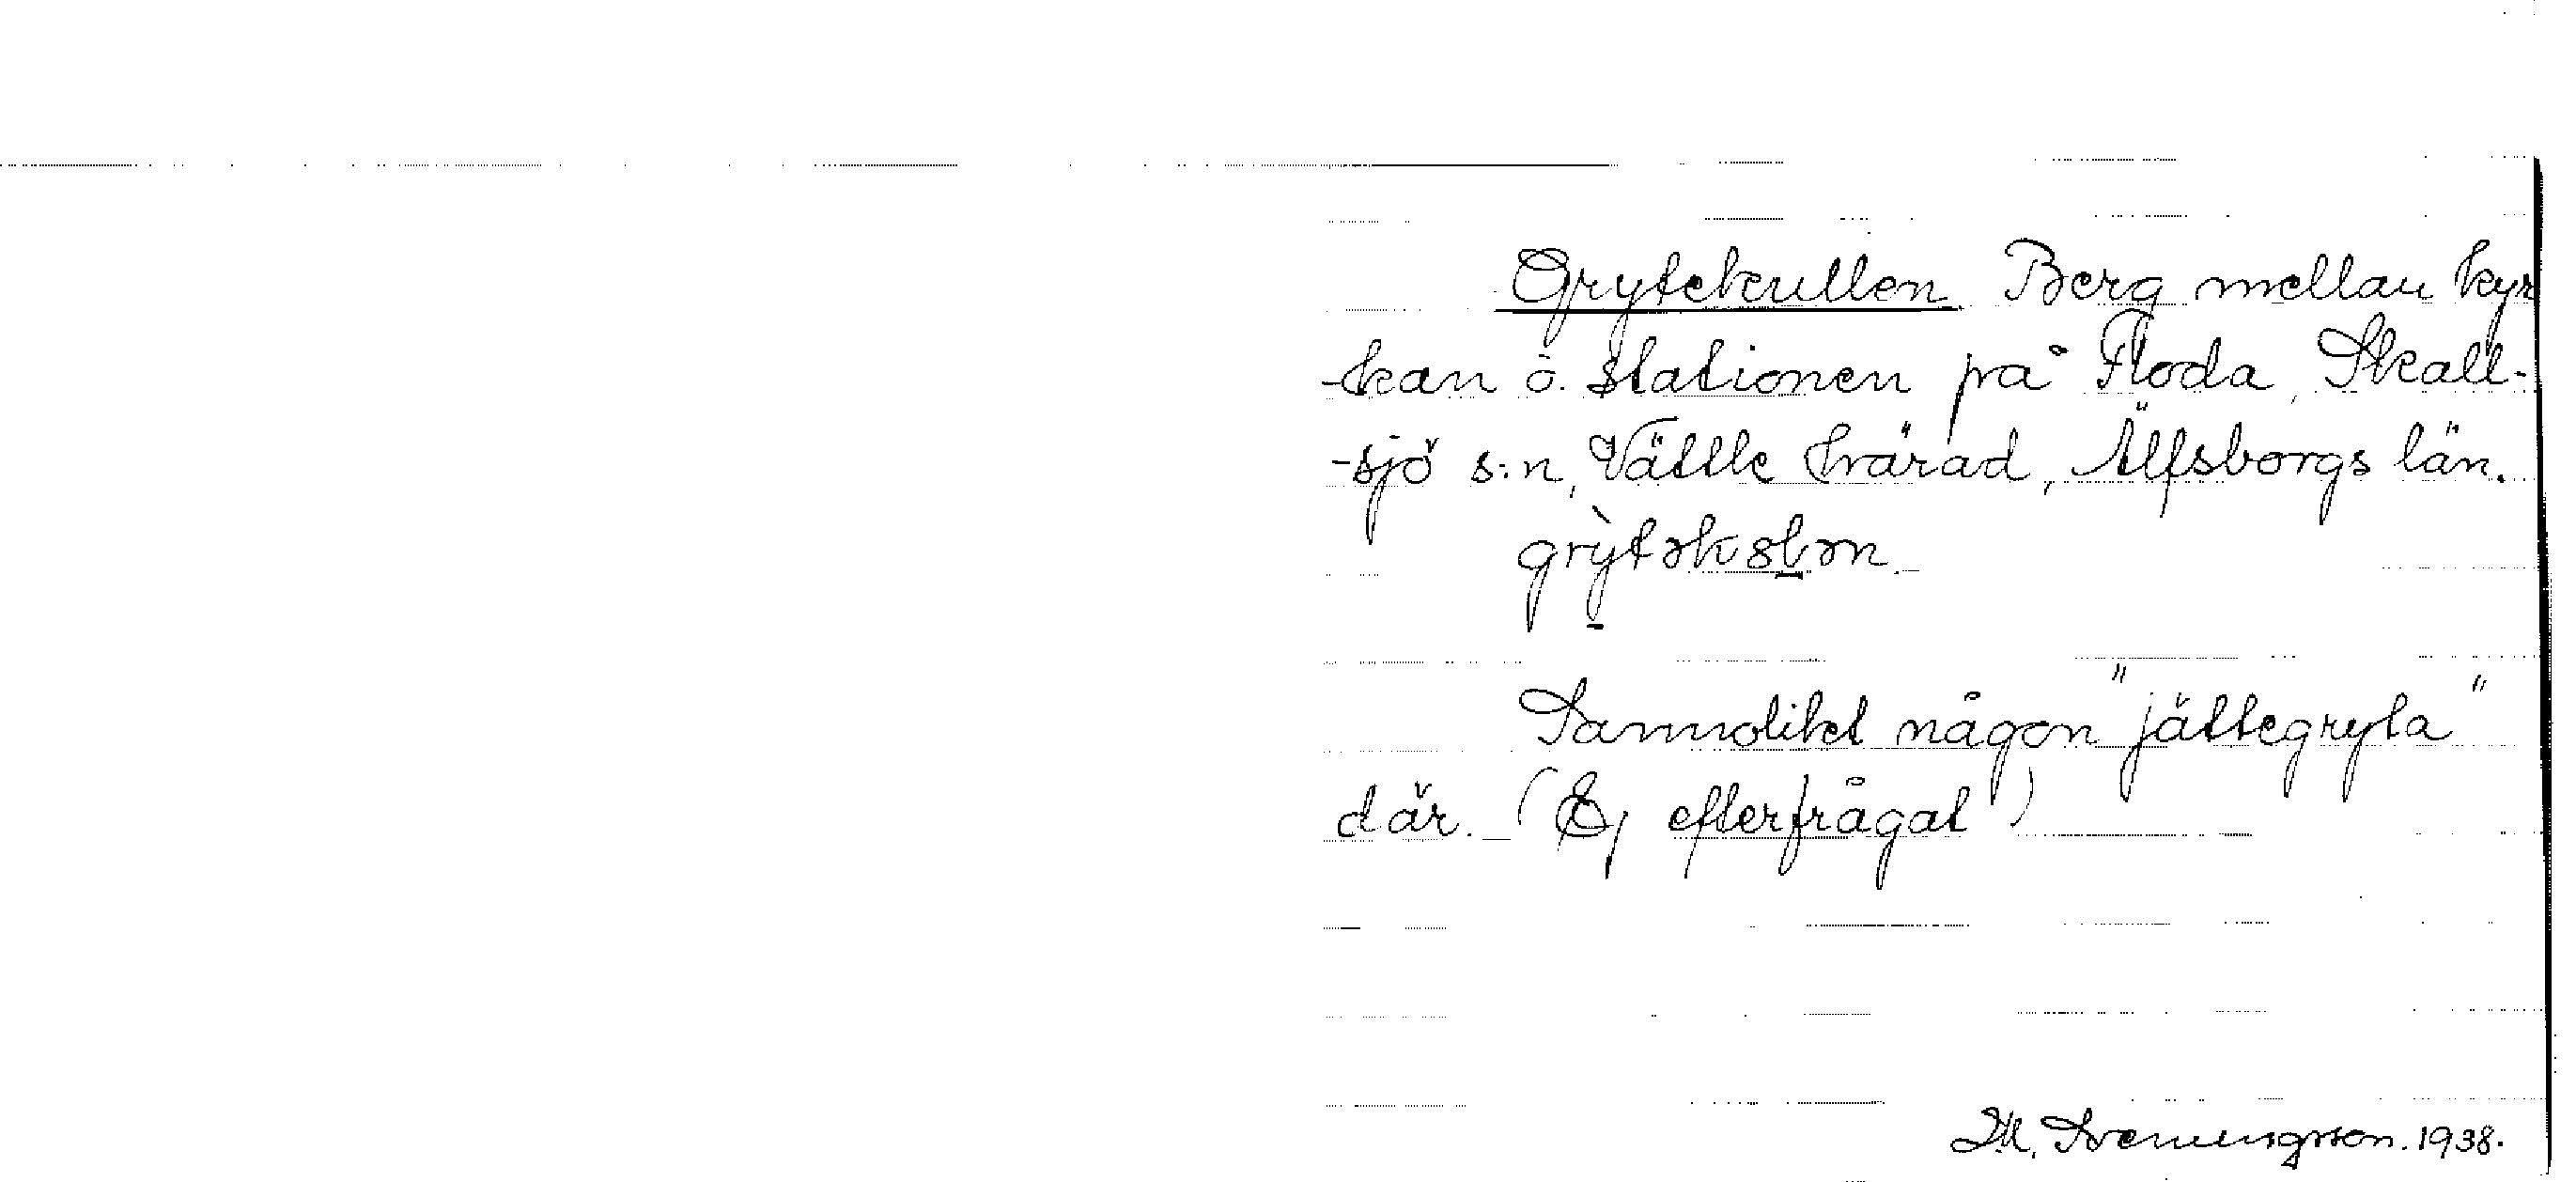 Grytekullen. Berg mellan kyr
-kan o. stationen på Floda, Skall-
-sjö s:n, Vättle härad, Älfsborgs län.
grỳtəkslən.
Sannolikt någon "jättegryta"
där. - (Ej efterfrågat)
Svenningsson. 1938.